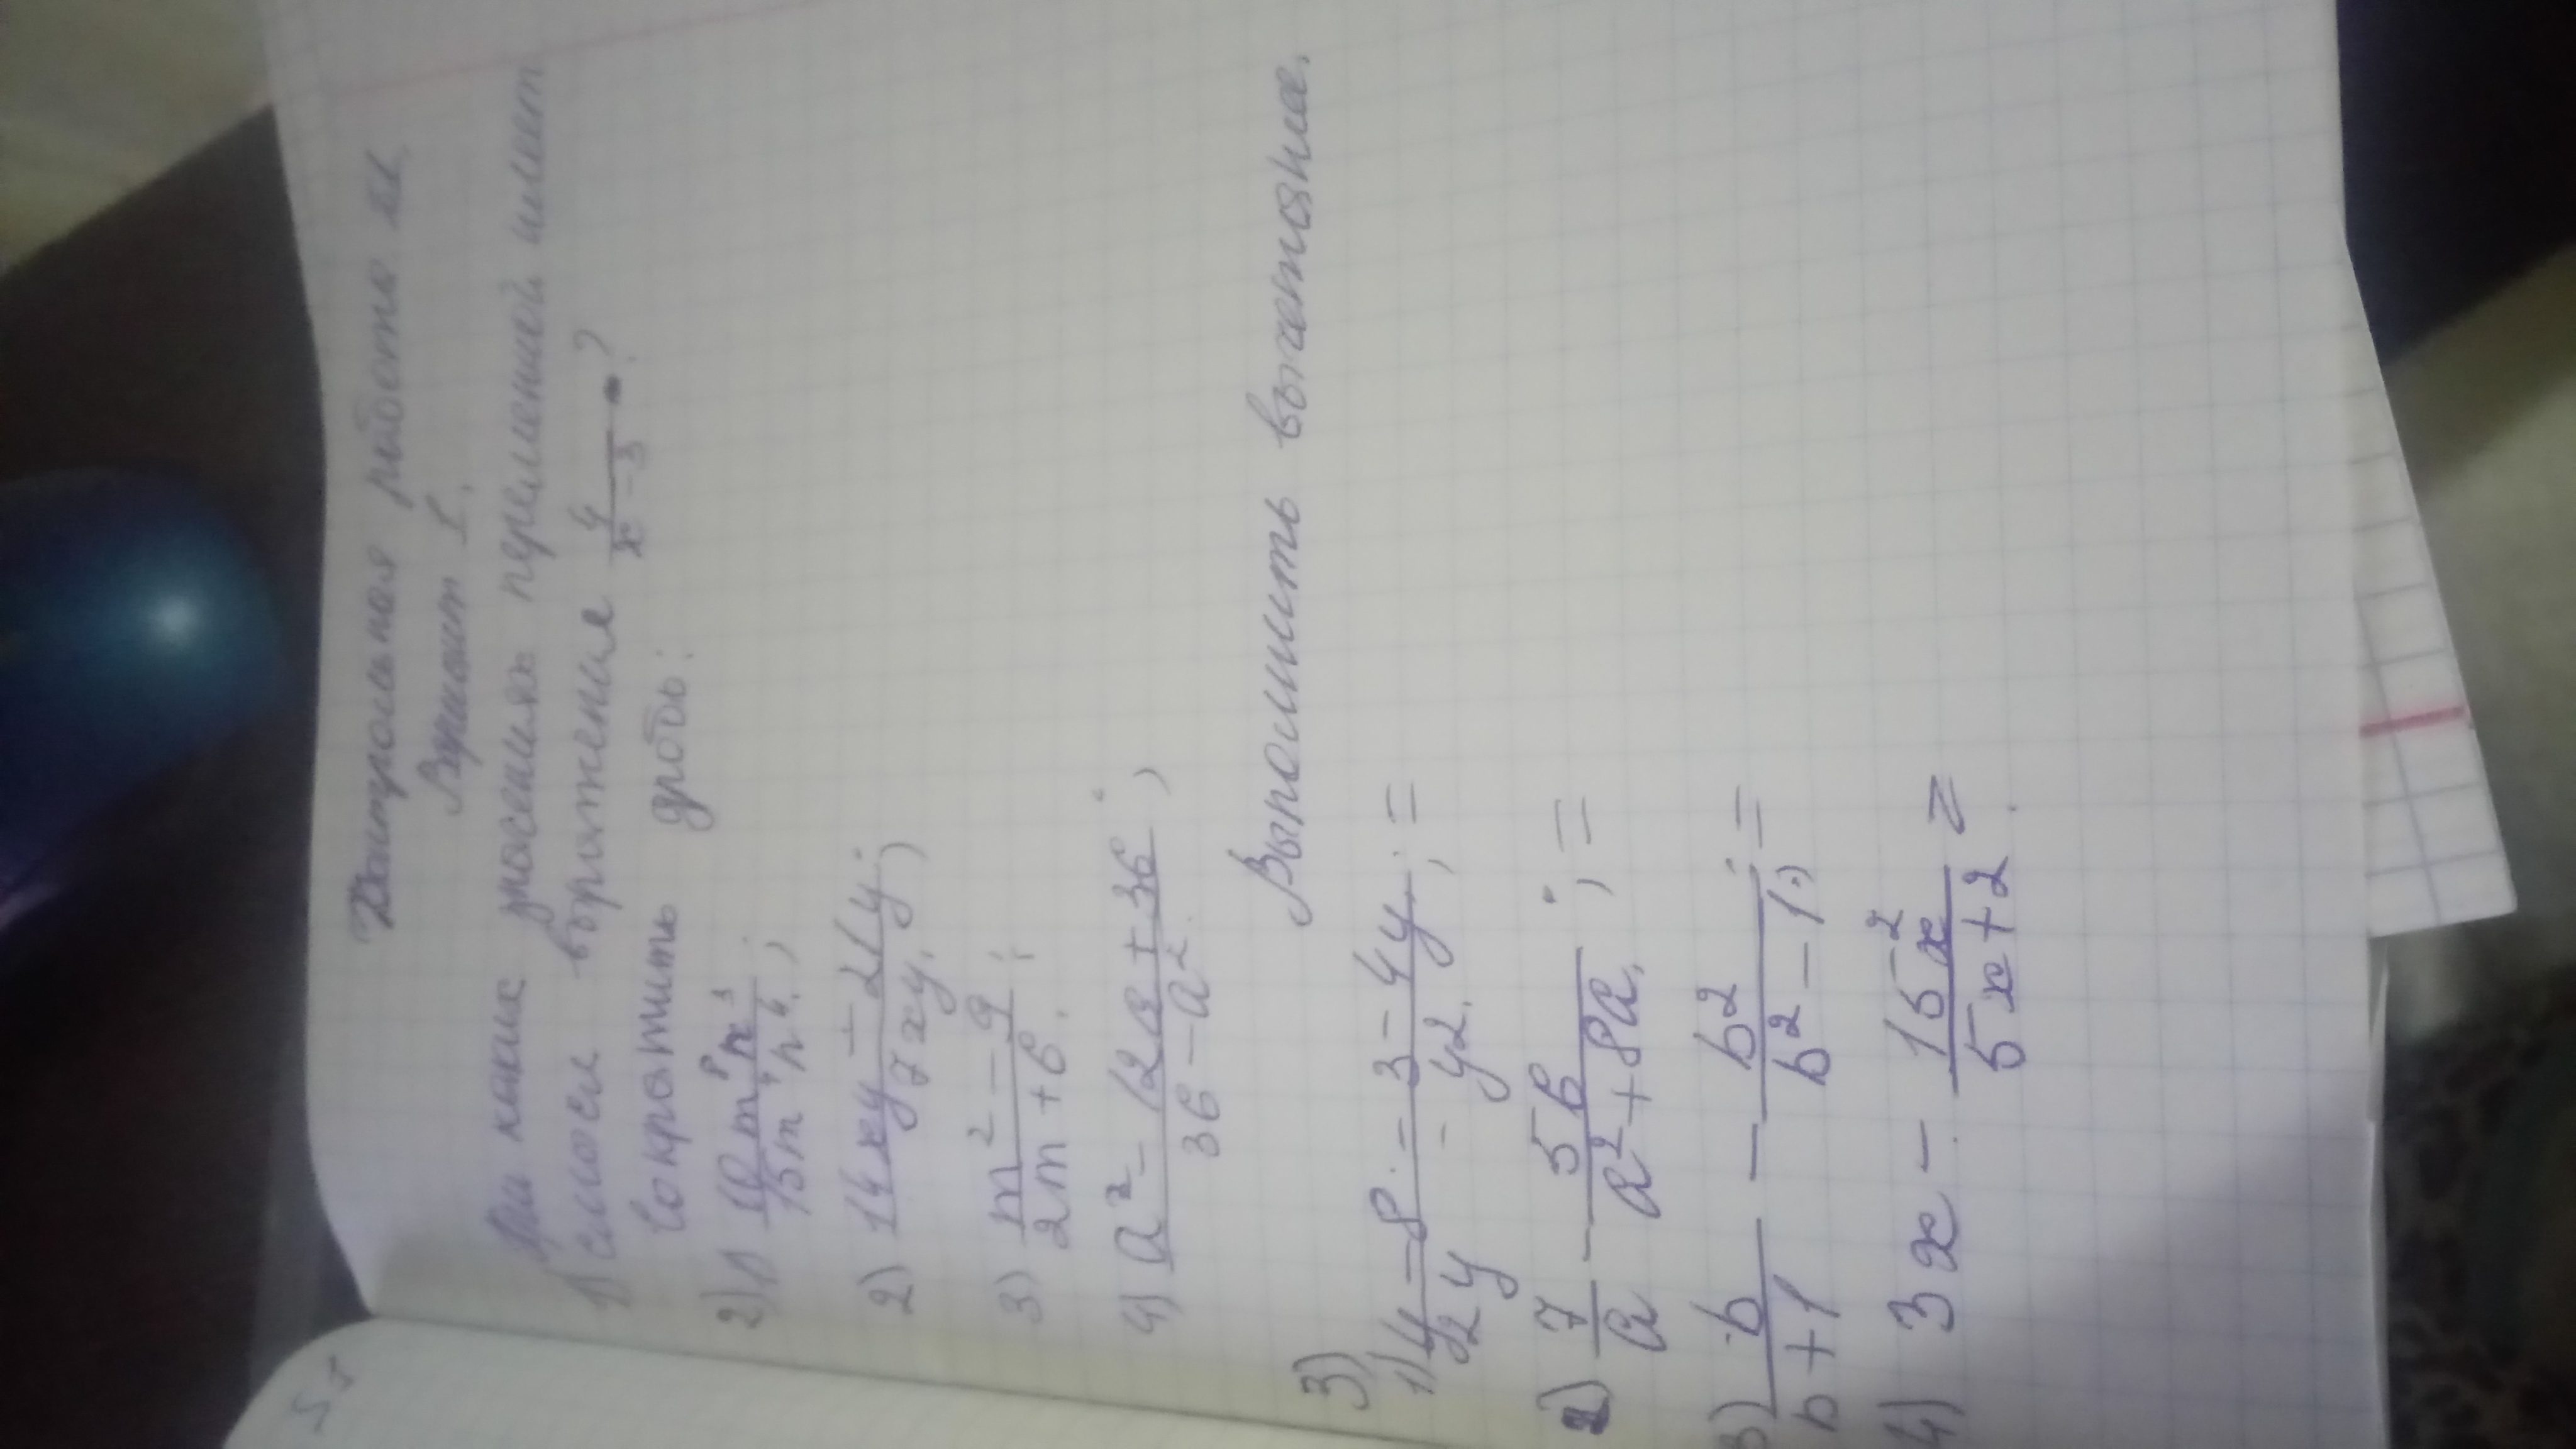 Контрольная работа №1
Вариант 1.
При каких значениях переменной имеет
1) смысл выражение 4/(x-3)?
Сократить дробь:
2) 1) 10m⁸n³/15m⁴n⁶;
2) 14xy-21y/7xy;
3) m²-9/2m+6;
4) a²-12a+36/36-a²;
3) Выполнить вычитание.
1) y-8/2y - 3-4y/y²; =
2) 7/a - 56/a²+8a; =
3) b/b+1 - b²/b²-1; =
4) 3x - 15x²/5x+2 =